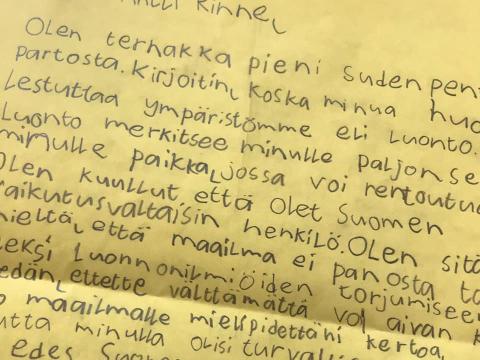 Rinne,
Olen ternakka pieni suden
partosta. Kirjoitin, koska minua
Lestuttaa ympäristömme eli luonto.
Luonto merkitsee minulle paljon se
minulle paikka, jossa voi rentoutu
Olen kuullut, että olet Suomen
aikutusvaltaisin henkilö. Olen sitä
mieltä, että maailma ei panosta
Luonnonilmiöiden torjumisee
ettette välttämättä voi aivan
maailmalle mielipidettäni kertoa,
utta minulla olisi
edes